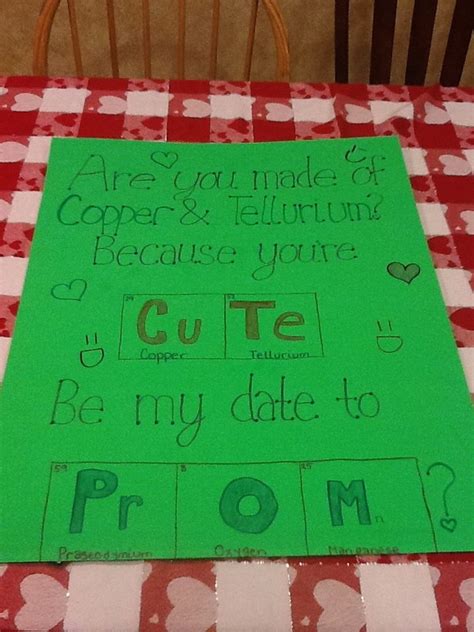 Are you made of
Copper & Tellurium?
Because you're
Cu Te
Copper Tellurium
Be my date to
59 8 25
Pr O Mn ?
Praseodymium Oxygen Manganese